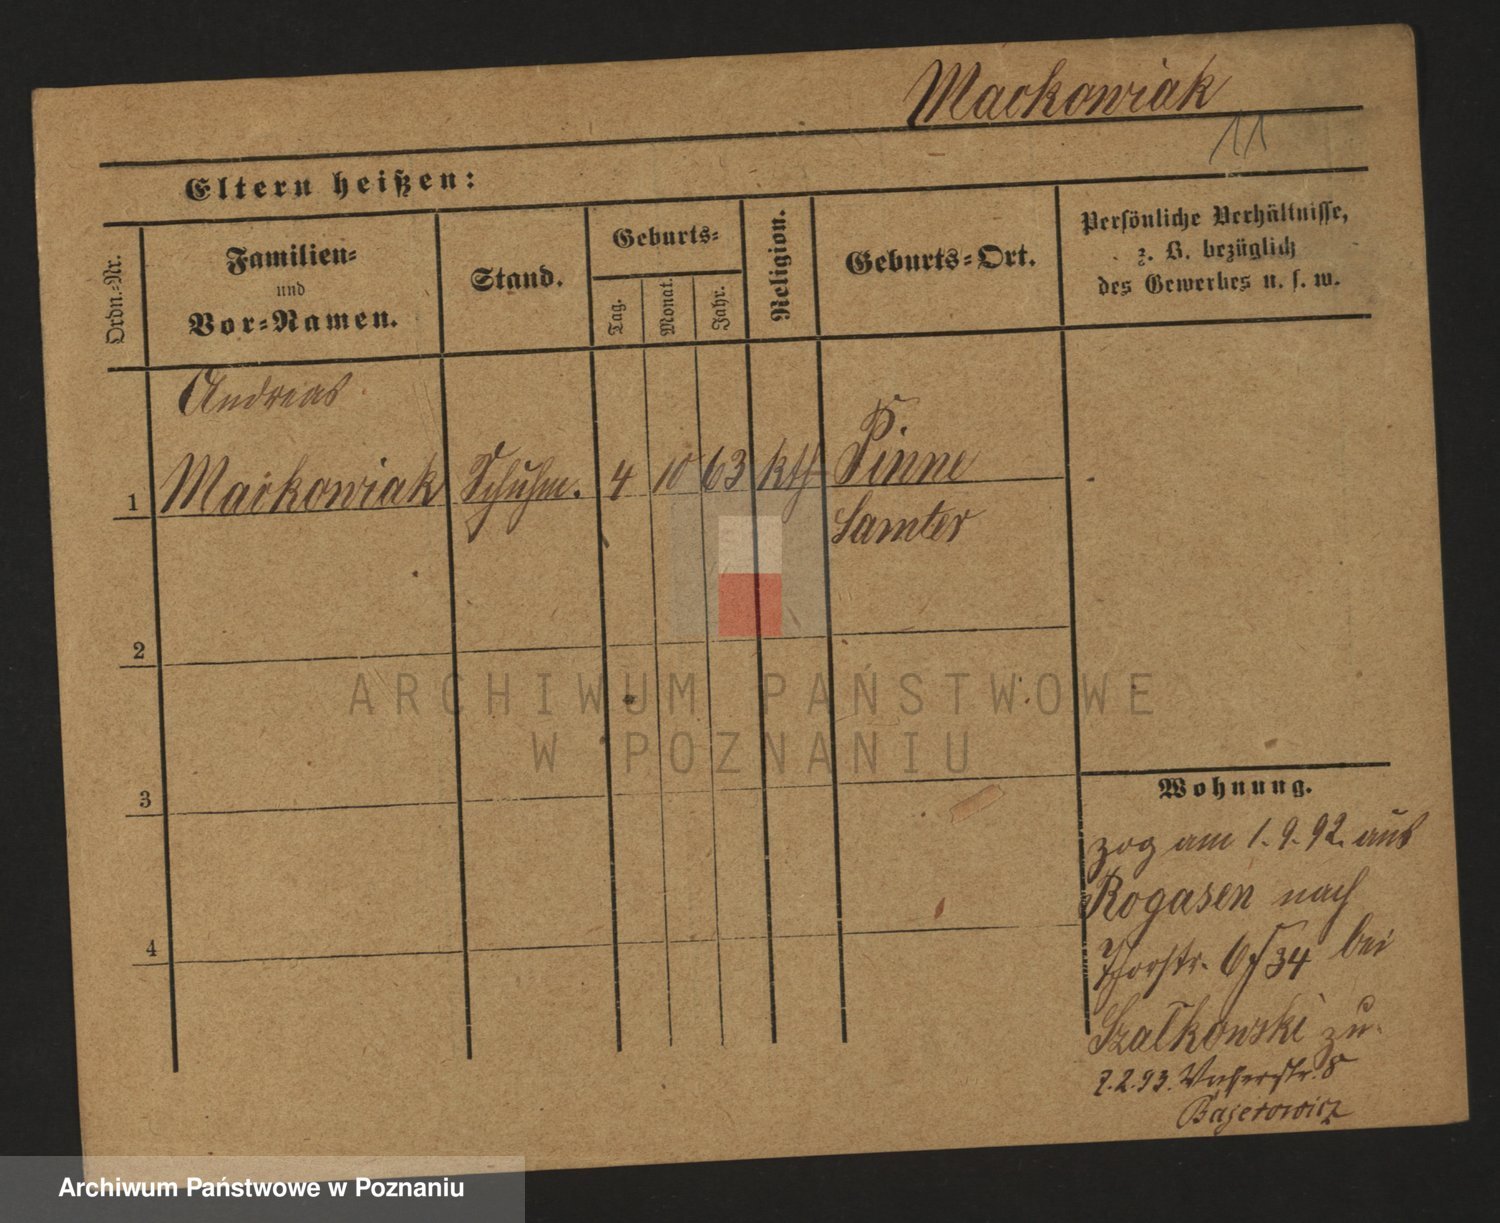 Mackowiak
11
Eltern heißen:
Ordn.-Nr.
Familien-
und
Vor-Namen.
Stand.
Geburts-
Tag.
Monat.
Jahr.
Religion.
Geburts-Ort.
Persönliche Verhältnisse,
z. B. bezüglich
des Gewerbes u. s. w.
Andreas
1 Mackowiak Schuhm. 4 10 63 kth Pinne
Samter
2
3
4
ARCHIWUM PAŃSTWOWE
W POZNANIU
Wohnung.
zog am 1.9.92. aus
Rogasen nach
Thorstr. 34 bei
Szalkowski zu.
7.2.93. 8
Bajerowicz
Archiwum Państwowe w Poznaniu